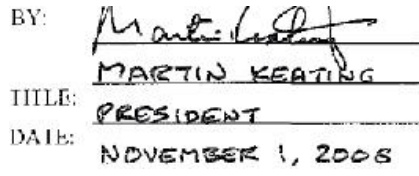 BY: Martin Keating
MARTIN KEATING
TITLE: PRESIDENT
DATE: NOVEMBER 1, 2008